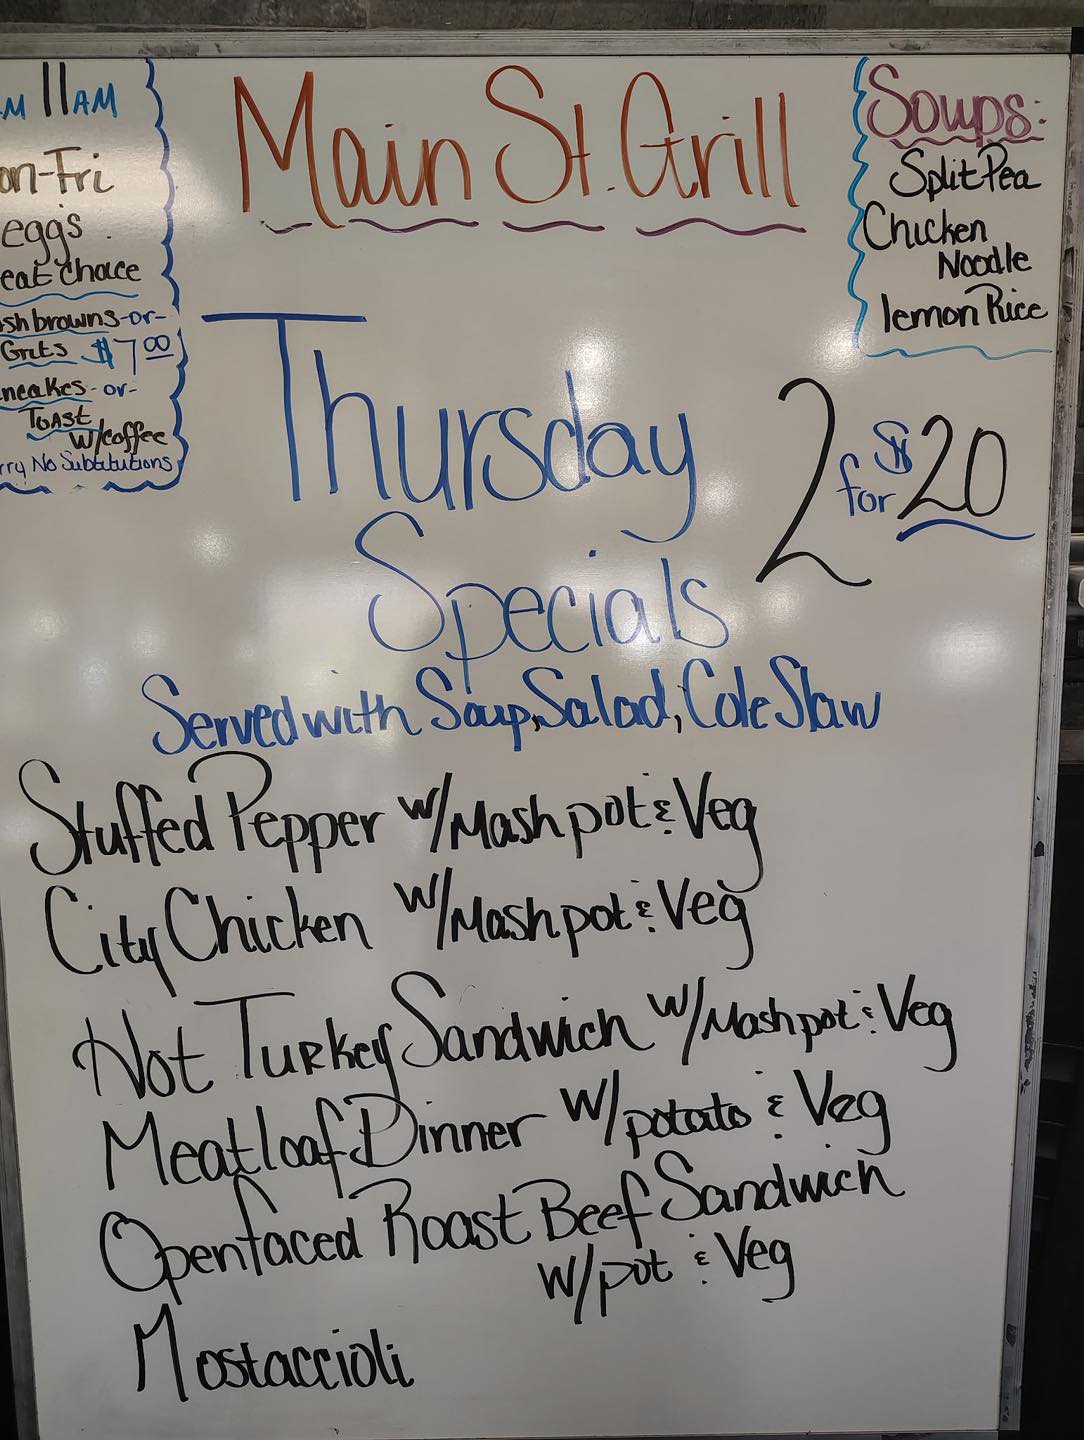 Main St. Grill
M 11AM
on-Fri
eggs
eat Choice
shbrowns-or-
Grits $7.00
ncakes-or-
Toast
w/coffee
rry No Subtitutions
Soups:
Split Pea
Chicken
Noodle
lemon Rice
Thursday
Specials
2 for $20
Served with Soup, Salad, Cole Slaw
Stuffed Pepper w/Mash pot & Veg
City Chicken w/Mash pot & Veg
Hot Turkey Sandwich w/Mash pot & Veg
Meatloaf Dinner w/potato & Veg
Openfaced Roast Beef Sandwich
w/pot & Veg
Mostaccioli